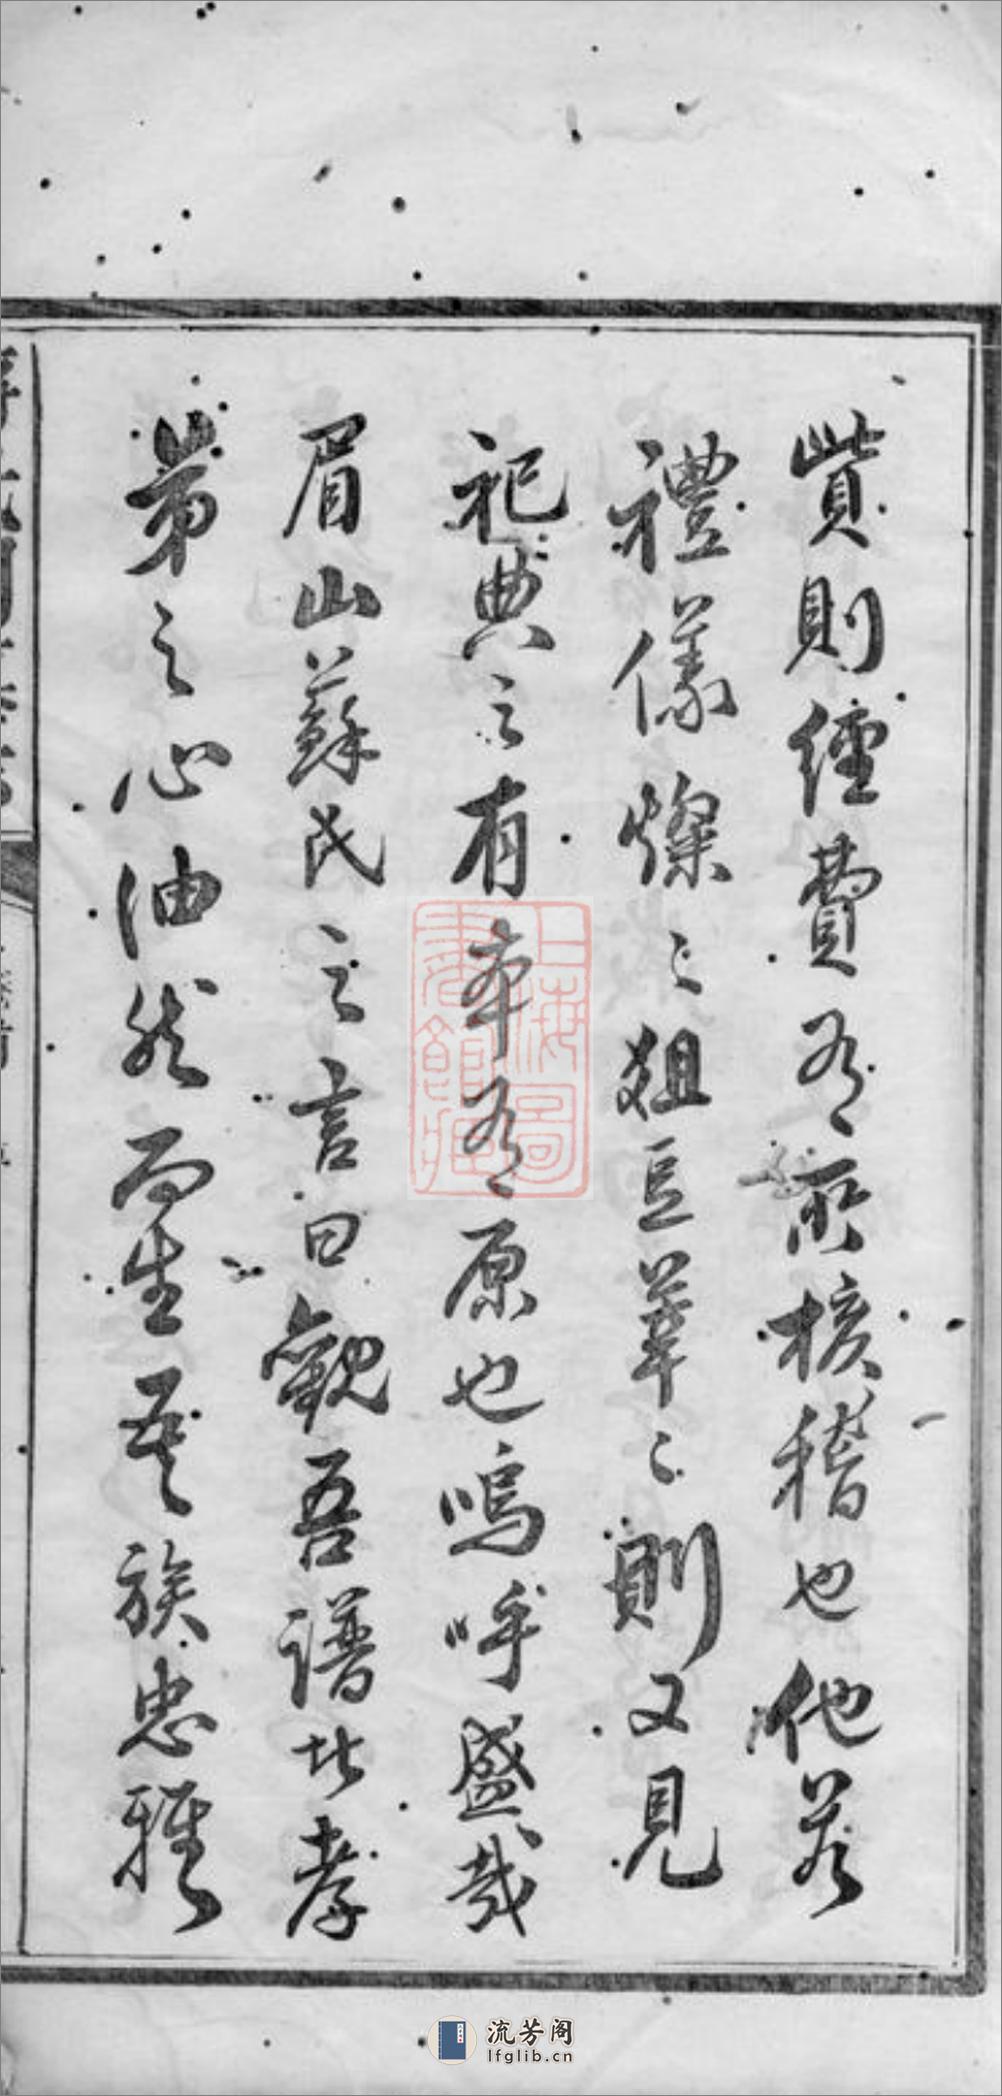 貲則經費有所核稽也他若
禮儀燦〻俎豆莘〻則又見
祀典之有本有原也嗚呼盛哉
眉山蘇氏之言曰觀吾譜者孝
弟之心油然而生吾族忠雅
上海圖書館藏
流芳阁
lfglib.cn